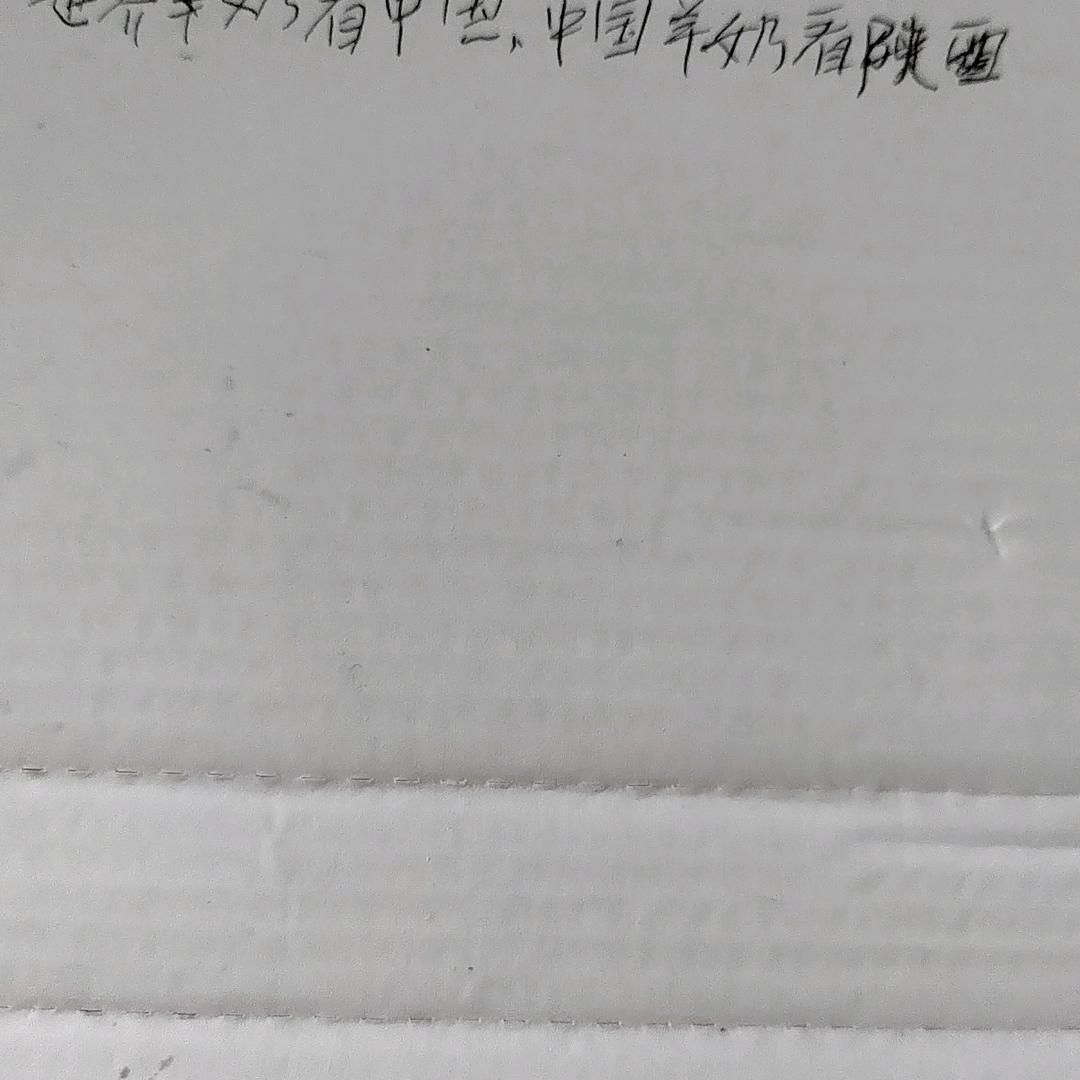 世界羊奶看中国、中国羊奶看陕西